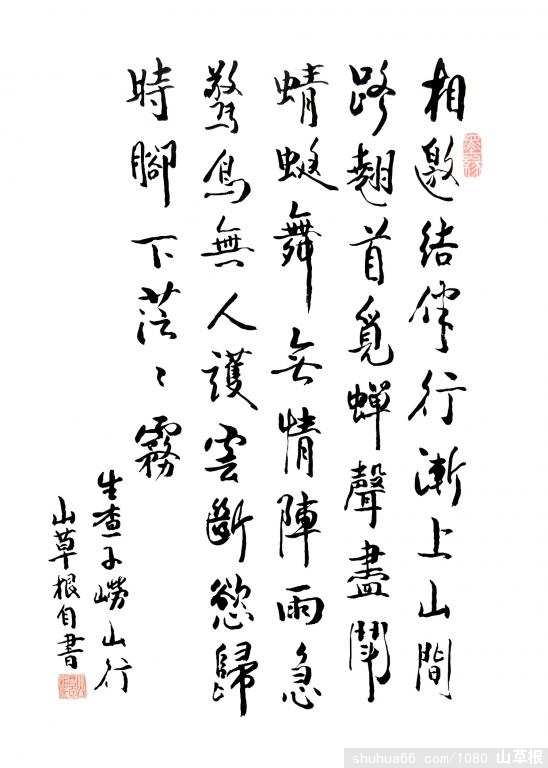 相邀結伴行漸上山間
路翹首覓蟬聲盡鬥
蜻蜓舞無情陣雨急
驚鳥無人護雲斷慾歸
時腳下茫〻霧
生查子嶗山行
山草根自書
shuhua66.com/1080 山草根